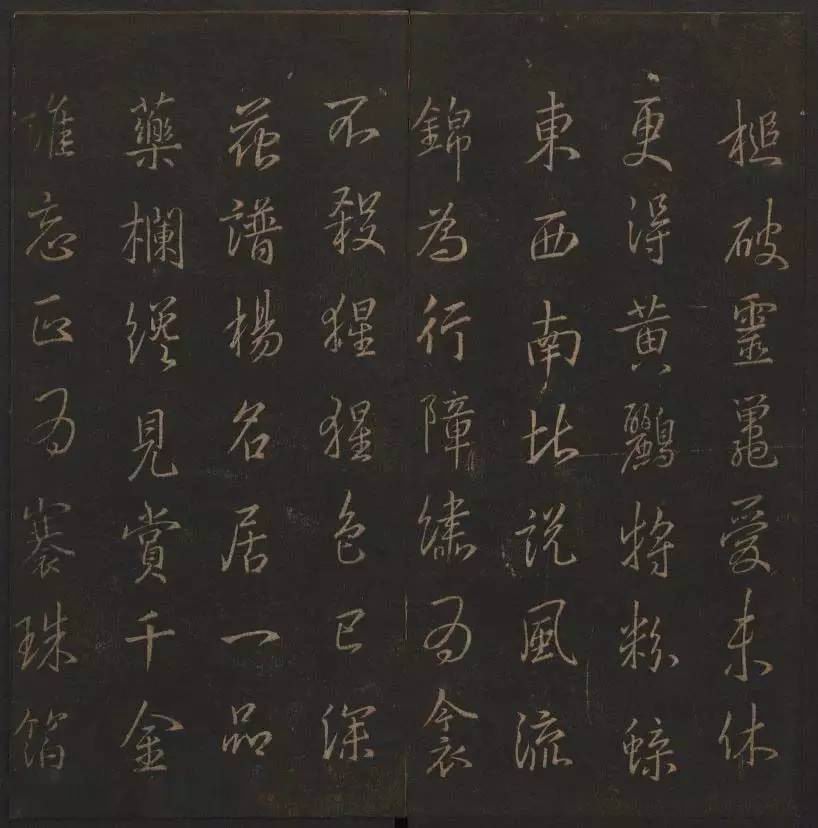 槌破靈鼉愛未休
更得黄鸝將粉蝶
東西南北説風流
錦為行障繡為衾
不殺猩猩色已深
花譜楊名居一品
藥欄纔見賞千金
忘正為褰珠箔